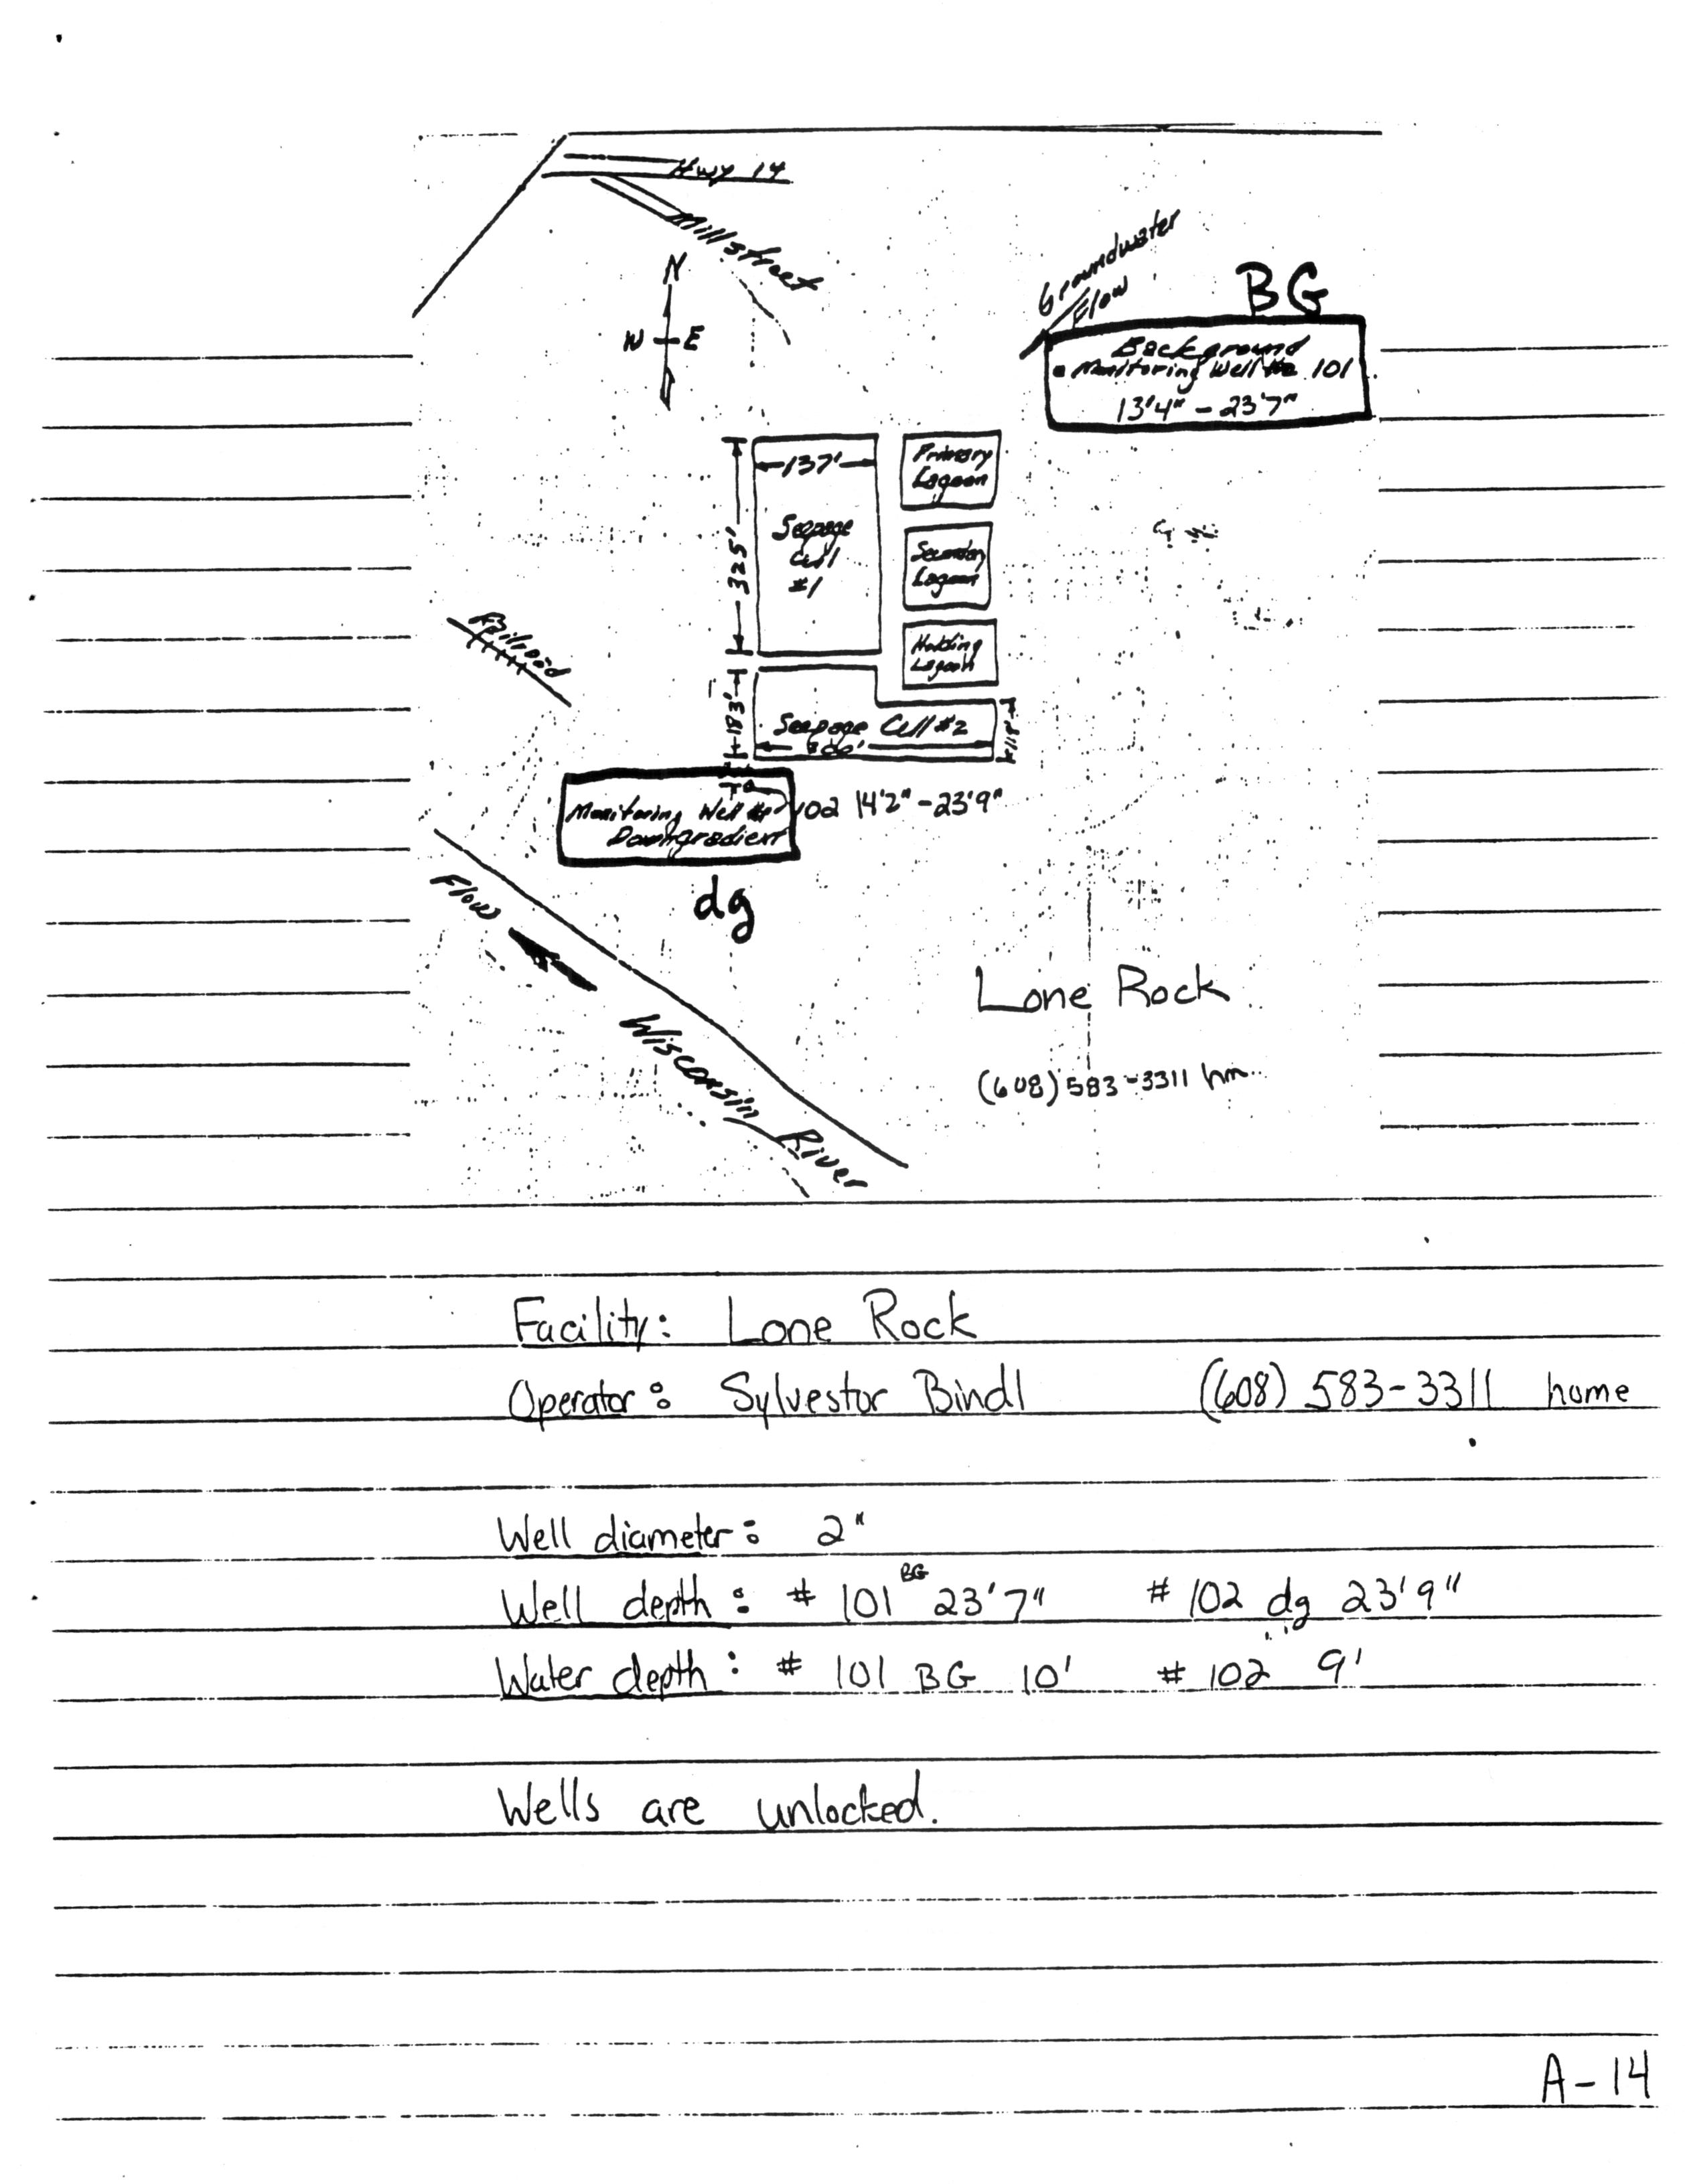 Hwy 14
Mill Street
N
W E
Groundwater
Flow
BG
Background
Monitoring Well No. 101
13'4" - 23'7"
137'
325'
Seepage
Cell
#1
Primary
Lagoon
Secondary
Lagoon
Holding
Lagoon
Railroad
183'
Seepage Cell #2
306'
118'
Monitoring Well 102 14'2" - 23'9"
Downgradient
dg
Flow
Wisconsin River
Lone Rock
(608) 583-3311 hm
Facility: Lone Rock
Operator: Sylvestor Bindl (608) 583-3311 home
Well diameter: 2"
Well depth: # 101 BG 23'7" # 102 dg 23'9"
Water depth: # 101 BG 10' # 102 9'
Wells are unlocked.
A-14